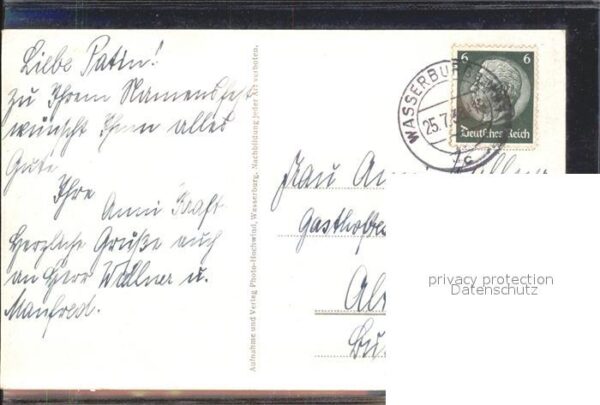 Liebe Patin!
zu Ihrem Namensfest
wünscht Ihnen alles
Gute
Ihre
Anni Kraft
Herzliche Grüße auch
an Herr Wallner u.
Manfred.
Aufnahme und Verlag Photo-Hochwind, Wasserburg. Nachbildung jeder Art verboten.
WASSERBURG
25.7.
6 6
Deutsches Reich
Frau
privacy protection
Datenschutz